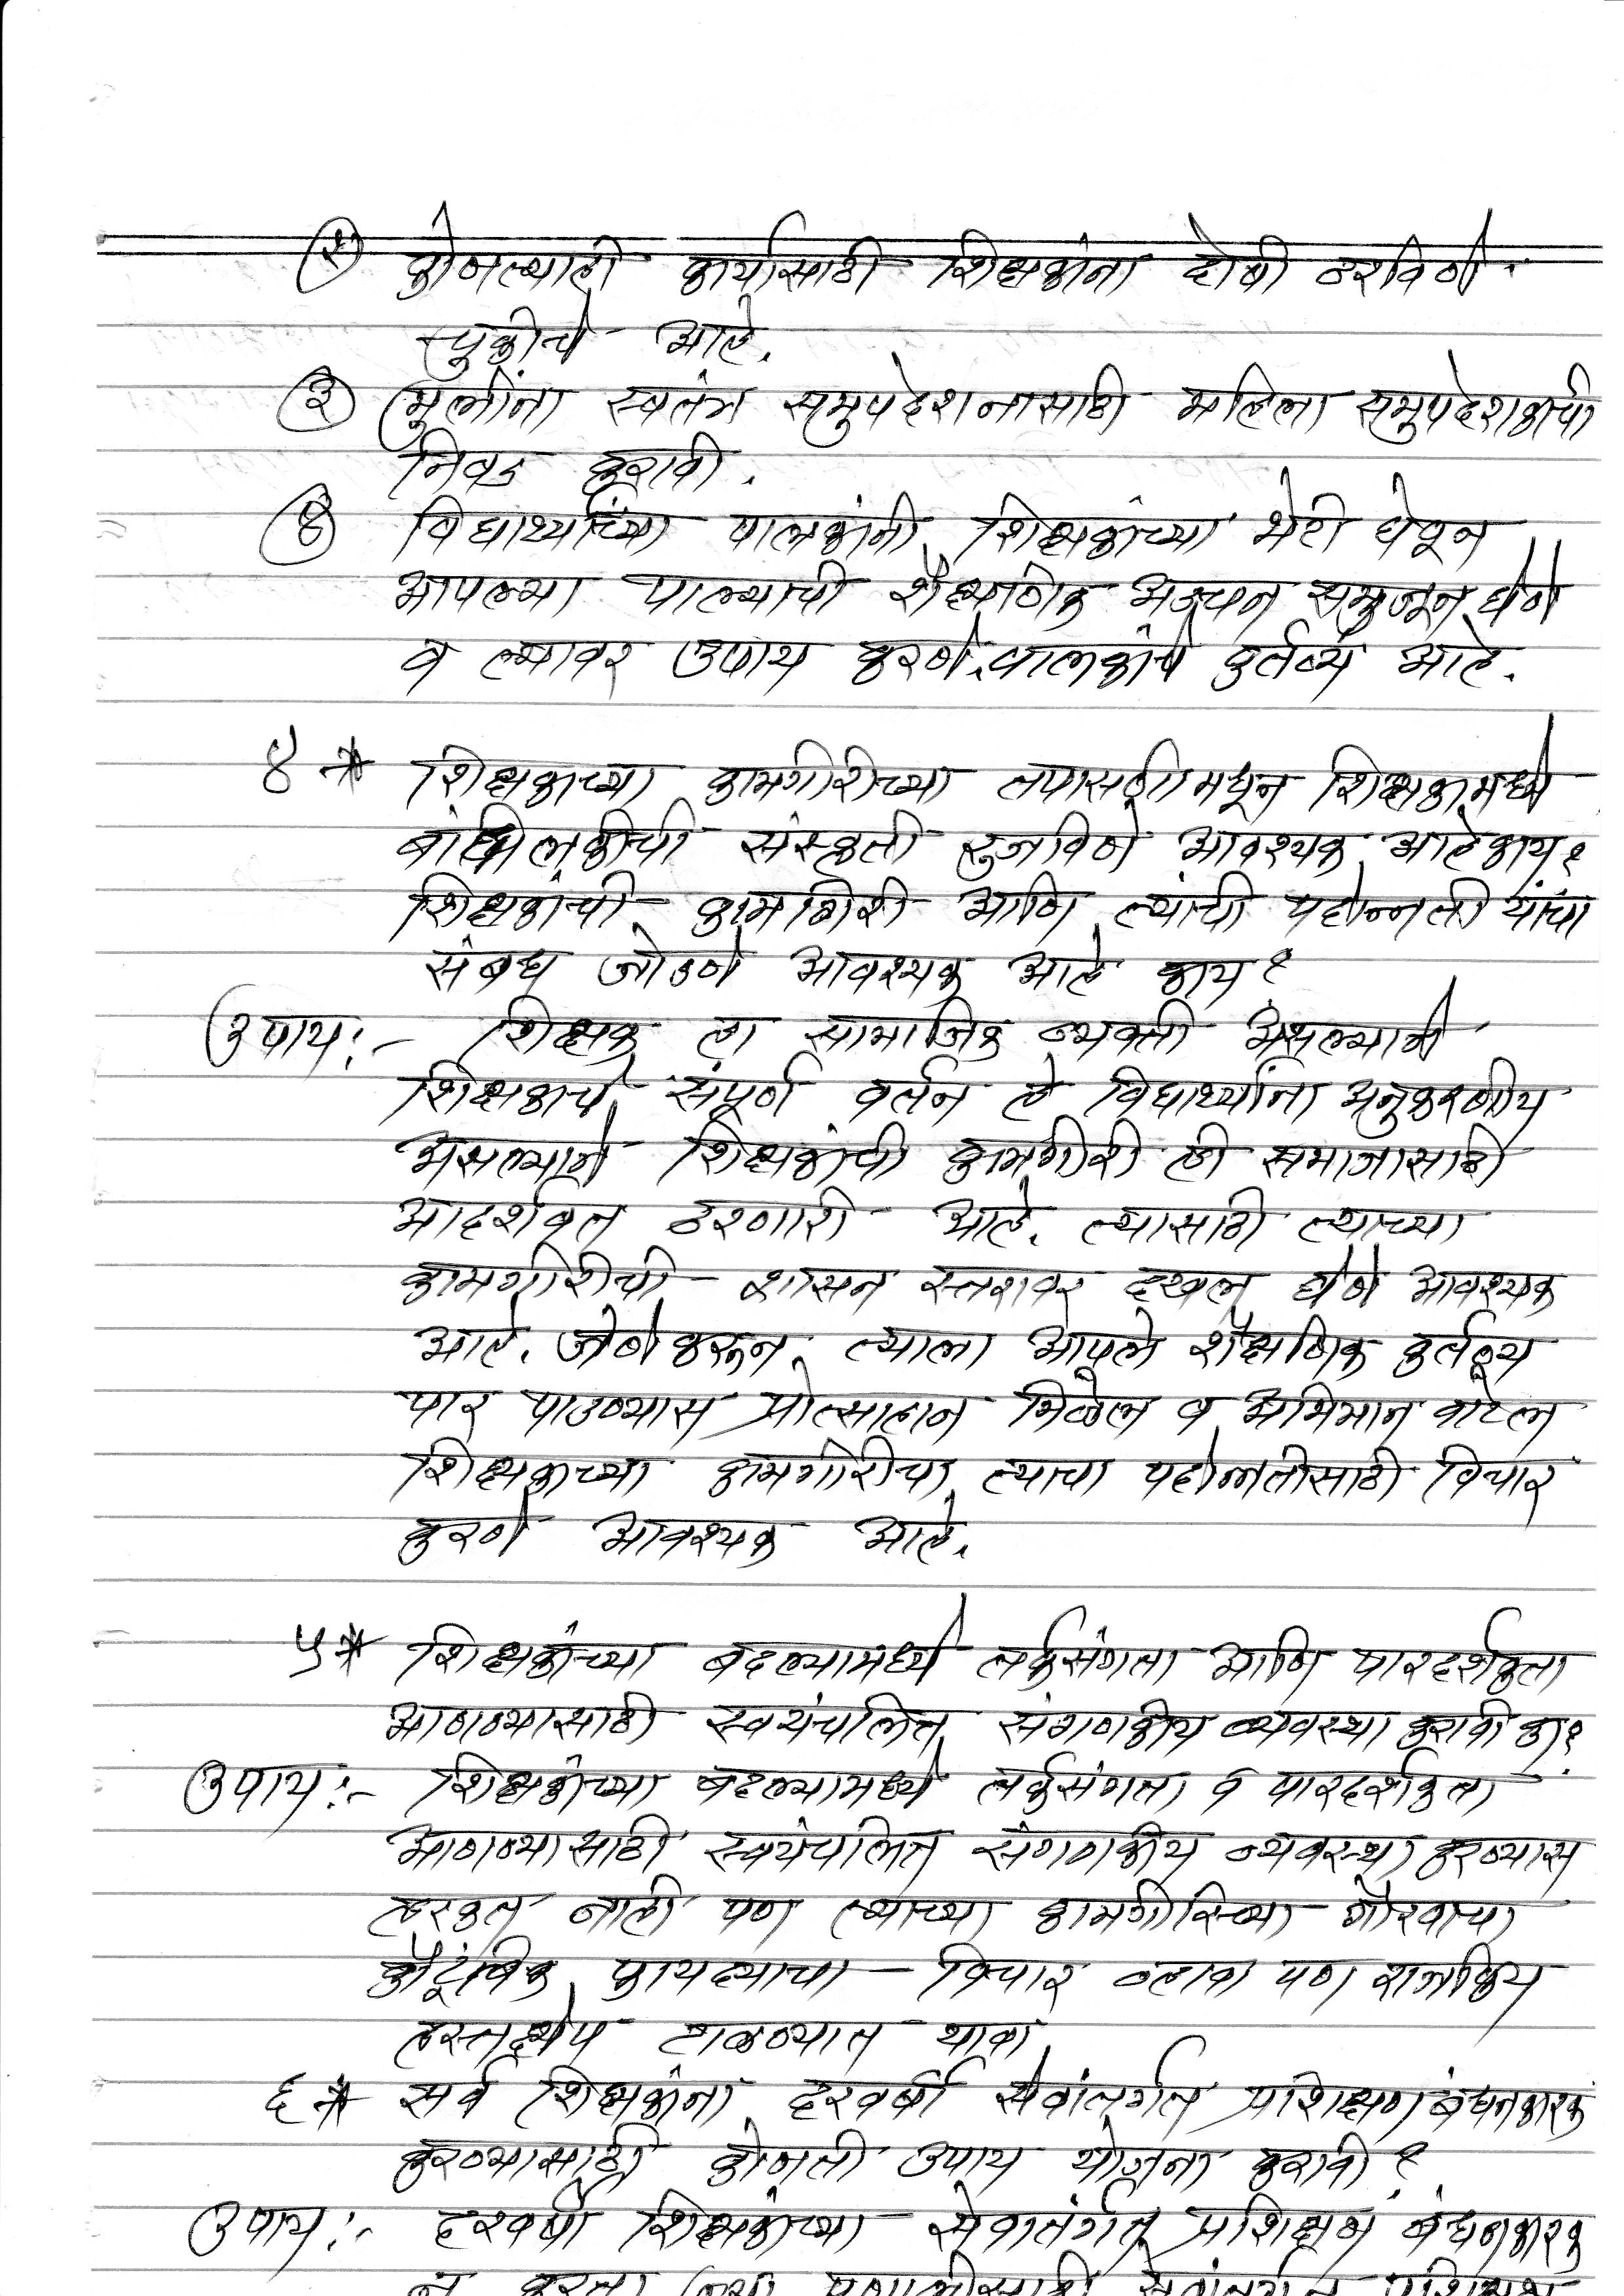 २) कोणत्याही कार्यासाठी शिक्षकांना दोषी ठरविणे
चुकीचे आहे.
३) मुलींना स्वतंत्र समुपदेशनासाठी महिला समुपदेशकाची
निवड करावी.
४) विद्यार्थ्यांच्या पालकांनी शिक्षकांच्या भेटी घेवून
आपल्या पाल्याची शैक्षणिक अडचन समजून घेणे
व त्यावर उपाय करणे पालकांचे कर्तव्य आहे.
४ * शिक्षकाच्या कामगीरीच्या तपासणीमधून शिक्षकामध्ये
बांधिलकीची संस्कृती रुजविणे आवश्यक आहे काय?
शिक्षकांची कामगिरी आणि त्यांची पदोन्नती यांचा
संबध जोडणे आवश्यक आहे काय?
उपाय:- शिक्षक हा सामाजिक व्यक्ती असल्याने
शिक्षकाचे संपूर्ण वर्तन हे विद्यार्थ्यांना अनुकरणीय
असल्याने शिक्षकांची कामगीरी ही समाजासाठी
आदर्शवत ठरणारी आहे. त्यासाठी त्याच्या
कामगीरीची शासन स्तरावर दखल घेणे आवश्यक
आहे. जेणेकरून त्याला आपले शैक्षणिक कर्तव्य
पार पाडण्यास प्रोत्साहान मिळेल व अभिमान वाटेल
शिक्षकाच्या कामगीरीचा त्याचा पदोन्नतीसाठी विचार
करणे आवश्यक आहे.
५ * शिक्षकांच्या बदल्यामध्ये तर्कसंगता आणि पारदर्शकता
आणण्यासाठी स्वयंचलित संगणकीय व्यवस्था करावी का?
उपाय:- शिक्षकांच्या बदल्यामध्ये तर्कसंगता व पारदर्शकता
आणण्यासाठी स्वयंचलित संगणकीय व्यवस्था करण्यास
हरकत नाही पण त्याच्या कामगीरिच्या गौरवाचा
कौटूंबिक फायद्याचा विचार व्हावा पण राजकिय
हस्तक्षेप टाळण्यात यावा
६ * सर्व शिक्षकांना दरवर्षी सेवांतर्गत प्रशिक्षण बंधनकारक
करण्यासाठी कोणती उपाय योजना करावी?
उपाय:- दरवर्षी शिक्षकांच्या सेवातंर्गत प्रशिक्षण बंधनकारक
न करता